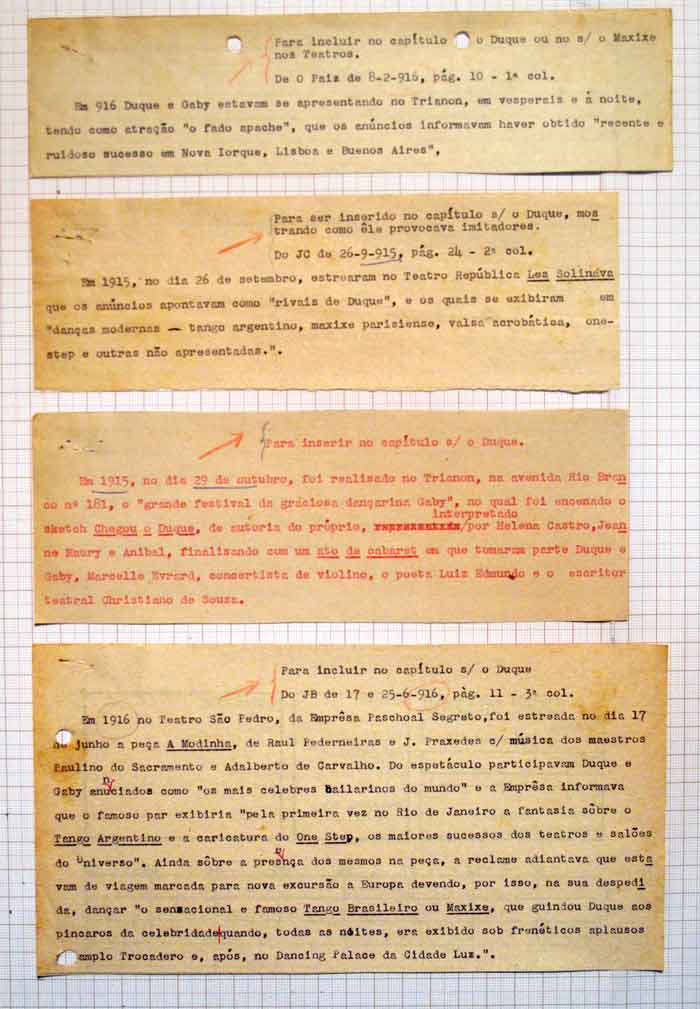 Para incluir no capítulo o Duque ou no s/ o Maxixe
nos Teatros.
De O Paiz de 8-2-916, pág. 10 - 1ª col.
Em 916 Duque e Gaby estavam se apresentando no Trianon, em vesperais e à noite,
tendo como atração "o fado apache", que os anúncios informavam haver obtido "recente e
ruidoso sucesso em Nova Iorque, Lisboa e Buenos Aires",
Para ser inserido no capítulo s/ o Duque, mos
trando como êle provocava imitadores.
Do JC de 26-9-915, pág. 24 - 2ª col.
Em 1915, no dia 26 de setembro, estrearam no Teatro República Les Solináva
que os anúncios apontavam como "rivais de Duque", e os quais se exibiram em
"danças modernas — tango argentino, maxixe parisiense, valsa acrobática, one-
step e outras não apresentadas.".
Para inserir no capítulo s/ o Duque.
Em 1915, no dia 29 de outubro, foi realisado no Trianon, na avenida Rio Bran
co nº 181, o "grande festival da graciosa dançarina Gaby", no qual foi encenado o
interpretado
sketch Chegou o Duque, de autoria do próprio, /por Helena Castro,Jean
ne Maury e Anibal, finalisando com um ato de cabaret em que tomaram parte Duque e
Gaby, Marcelle Evrard, concertista de violino, o poeta Luiz Edmundo e o escritor
teatral Christiano de Souza.
Para incluir no capítulo s/ o Duque
Do JB de 17 e 25-6-916, pàg. 11 - 3ª col.
Em 1916 no Teatro São Pedro, da Emprêsa Paschoal Segreto,foi estreada no dia 17
de junho a peça A Modinha, de Raul Pederneiras e J. Praxedes c/ música dos maestros
Paulino do Sacramento e Adalberto de Carvalho. Do espetáculo participavam Duque e
Gaby anunciados como "os mais celebres bailarinos do mundo" e a Emprêsa informava
que o famoso par exibiria "pela primeira vez no Rio de Janeiro a fantasia sôbre o
Tango Argentino e a caricatura do One Step, os maiores sucessos dos teatros e salões
do Universo". Ainda sôbre a presença dos mesmos na peça, a reclame adiantava que esta
vam de viagem marcada para nova excursão a Europa devendo, por isso, na sua despedi
da, dançar "o sensacional e famoso Tango Brasileiro ou Maxixe, que guindou Duque aos
pincaros da celebridade quando, todas as noites, era exibido sob frenéticos aplausos
amplo Trocadero e, após, no Dancing Palace da Cidade Luz.".